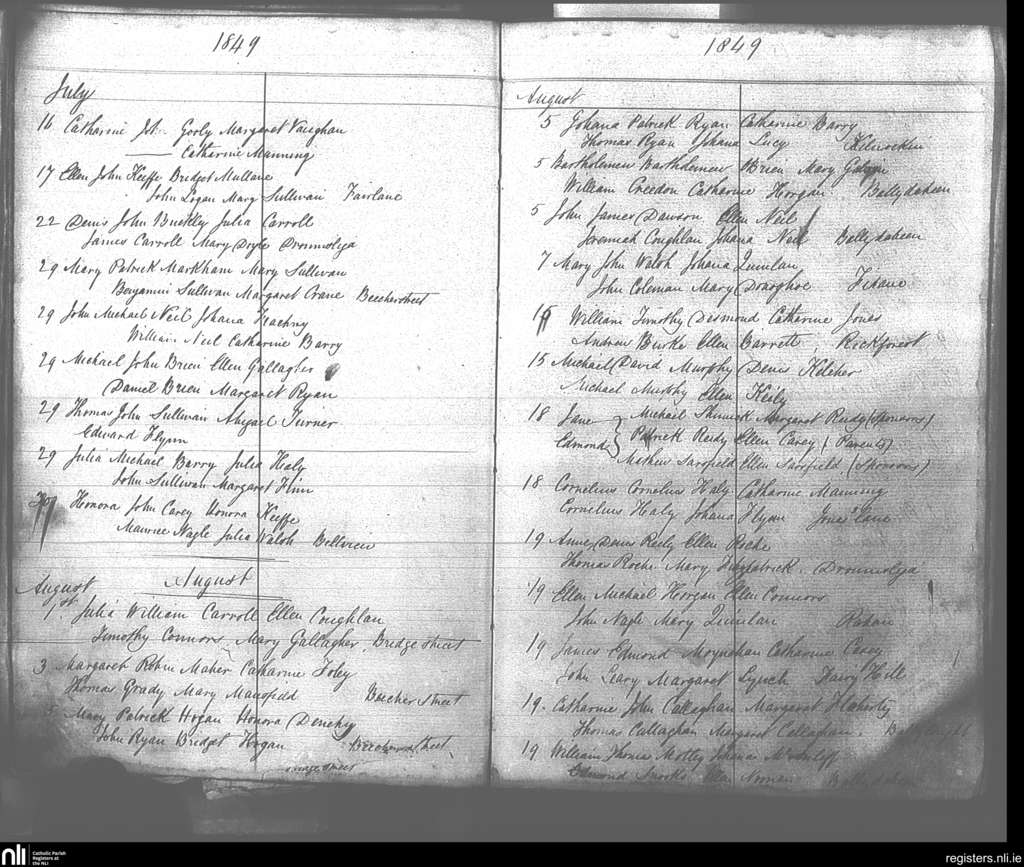 1849
July
16 Catharine Jn. Gorly Margaret Vaughan
Catharine Manning
17 Ellen John Keiffe Bridget Mullane
John Logan Mary Sullivan Fairlane
22 Denis John Buckley Julia Carroll
James Carroll Mary Doyle Dromsligo
29 Mary Patrick Markham Mary Sullivan
Benjamin Sullivan Margaret Crane Beecherstreet
29 John Michael Neil Johana
William Neil Catharine Barry
29 Michael John Brien Ellen Gallagher
Daniel Brien Margaret Ryan
29 Thomas John Sullivan Abigail Turner
Edward Flynn
29 Julia Michael Barry Julia Healy
John Sullivan Margaret Finn
Honora John Carey Honora Keiffe
Maurice Nagle Julia Walsh Bellview
August
August
1st. Julia William Carroll Ellen Coughlan
Timothy Connors Mary Gallagher Bridgestreet
3 Margaret Robin Maher Catharine Foley
Thomas Grady Mary Mansfield Beecherstreet
5 Mary Patrick Hogan Honora Denehy
John Ryan Bridget Hogan street
street
1849
August
5 Johana Patrick Ryan Catharine Barry
Thomas Ryan Johana Lucy
5 Bartholmew Bartholemew Brien Mary Galvin
William Creedon Catharine Horgan Ballydaheen
5 John James Dawson Ellen Neil
Jeremiah Coughlan Johana Neil Ballydaheen
7 Mary John Walsh Johana Quinlan
John Coleman Mary Donoghoe
William Timothy Desmond Catharine Jones
Andrew Burke Ellen Barrett Rockforest
15 Michael David Murphy Denis Keliher
Michael Murphy Ellen Keily
18 Jane Michael Margaret Reidy (Sponsors)
Edmond Patrick Reidy Ellen Carey (Parents)
Mathew Sarsfield Ellen Sarsfield (Sponsors)
18 Cornelius Cornelius Haly Catharine Manning
Cornelius Haly Johana Flynn lane
19 Anne Denis Reily Ellen Roche
Thomas Roche Mary Fitzpatrick Dromsligo
19 Ellen Michael Horgan Ellen Connors
John Nagle Mary Quinlan Rahan
19 James Edmond Moynehan Catharine Carey
John Leary Margaret Lynch Dairy Hill
19. Catharine John Callaghan Margaret Flaherty
Thomas Callaghan Margaret Callaghan
19 William Thomas Motley Johana
Edmond Ellen
nli
Catholic Parish
Registers at
the NLI
registers.nli.ie